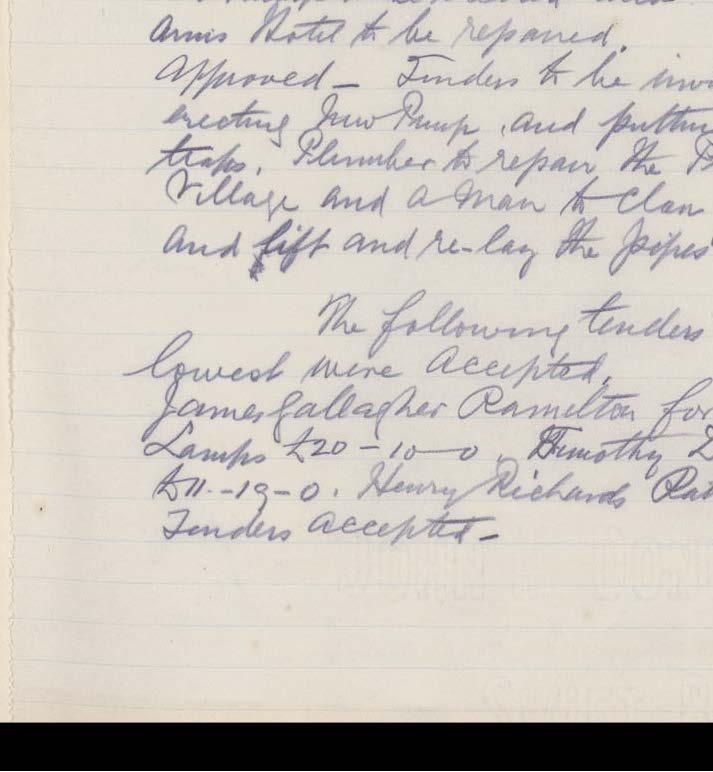 Arms Hotel to be repaired.
Approved – Tenders to be
erecting New Pump, and
traps. Plumber to repair the
Village and a Man to Clean
and lift and re-lay the pipes
The following tenders
lowest were accepted.
James Gallagher Ramelton for
Lamps £20-10-0. Timothy
£11.-19-0. Henry Richards
Tenders accepted –